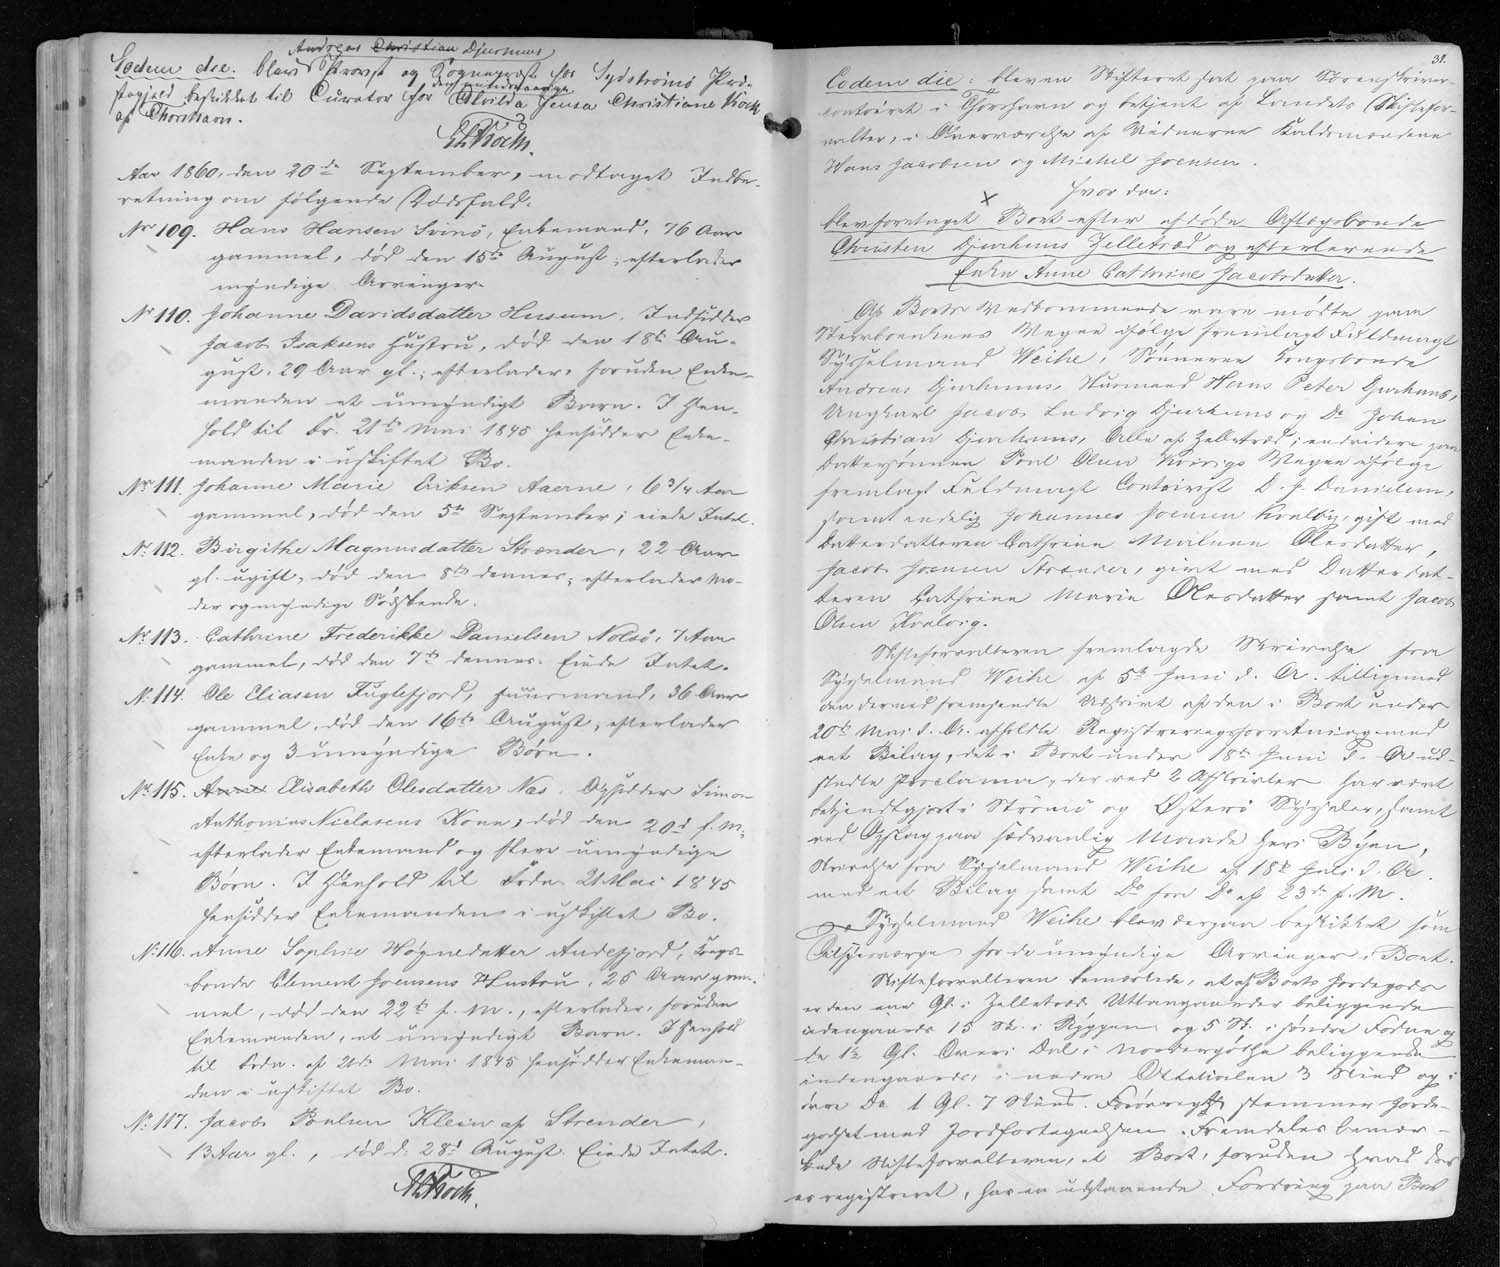 Andreas Christian Djurhuus
Eodem die. blev Provst og Sognepræst for Syderøens Præ-
stegjeld beskikket til Curator for den mindreaarige Thilda Jensa Christiane Koch
af Thorshavn.
HKoch.
Aar 1860, den 20de September, modtaget Indbe-
retning om følgende Dødsfald:
No 109. Hans Hansen Svinø, Enkemand, 76 Aar
gammel, død den 15de August; efterlader
myndige Arvinger.
No 110. Johanne Davidsdatter Husum, Indsidder
Jacob Isaksens Hustru, død den 18de Au-
gust, 29 Aar gl.; efterlader foruden Enke-
manden et umyndigt Barn. I Hen-
hold til Fr. 21de Mai 1845 hensidder Enke-
manden i uskiftet Bo.
No 111. Johanne Marie Eriksen Aaerne, 6 3/4 Aar
gammel, død den 5te September; eiede Intet.
No 112. Birgithe Magnusdatter Strænder, 22 Aar
gl. ugift, død den 8de dennes; efterlader Mo-
der og myndige Sødskende.
No 113. Cathrine Frederikke Danielsen Nolsø, 7 Aar
gammel, død den 7de dennes. Eiede Intet.
No 114. Ole Eliasen Fuglefjord, Huusmand, 36 Aar
gammel, død den 16de August; efterlader
Enke og 3 umyndige Børn.
No 115. Anne Elisabeth Olesdatter Næs, Opsidder Simon
Anthonius Niclasens Kone, død den 20de f. M.;
efterlader Enkemand og flere umyndige
Børn. I Henhold til Frdn. 21 Mai 1845
hensidder Enkemanden i uskiftet Bo.
No 116. Anne Sophie Høgnedatter Andefjord, Kongs-
bonde Clement Joensens Hustru, 25 Aar gam-
mel, død den 22de f. M., efterlader, foruden
Enkemanden, et umyndigt Barn. I Henhold
til Frdn. af 21de Mai 1845 hensidder Enkeman-
den i uskiftet Bo.
No 117. Jacob Poulsen Klein af Strender,
13 Aar gl., død d. 28de August. Eiede Intet.
HKoch.
31.
Eodem die: bleven Skifteret sat paa Sorenskriver-
contoiret i Thorshavn og betjent af Landets Skiftefor-
valter, i Overværelse af Vidnerne Kaldsmændene
Hans Jacobsen og Michel Joensen.
Hvor da:
blev foretaget Boet efter afdøde Aftægsbonde
Christen Djurhuus Zelletræd og efterlevende
Enke Anne Cathrine Jacobsdatter.
Af Boets Vedkommende vare mødte paa
Stervboenkens Vegne ifølge fremlagt Fuldmagt
Sysselmand Weihe, Sønnerne Kongsbonde
Andreas Djurhuus, Huusmand Hans Peter Djurhuus,
Ungkarl Jacob Ludvig Djurhuus og Do Johan
Christian Djurhuus, Alle af Zelletræd; endvidere paa
Dattersønnen Poul Olsen Kvivigs Vegne ifølge
fremlagt Fuldmagt Contoirist D. J. Danielsen,
samt endelig Johannes Joensen Kvalvig, gift med
Datterdatteren Cathrine Malene Olesdatter,
Jacob Joensen Strænder, givt med Datterdat-
teren Cathrine Marie Olesdatter samt Jacob
Olsen Kvalvig.
Skifteforvalteren fremlagde Skrivelse fra
Sysselmand Weihe af 5te Juni d. A. tilligemed
den dermed fremsendte Udskrivt af den i Boet under
20de Mai d. A. afholdte Registreringsforretning med
eet Bilag, det i Boet under 18de Juni d. A. ud-
stedte Proclama, der ved 2 Afskrivter har været
bekjendtgjort i Strømø og Østerø Sysseler, samt
ved Opslag paa sædvanlig Maade her i Byen,
Skrivelse fra Sysselmand Weihe af 18de Juli d. A.
med eet Bilag samt Do fra Do af 23de f. M.
Sysselmand Weihe blev derpaa beskikket som
Tilsynsværge for de umyndige Arvinger i Boet.
Skifteforvalteren bemærkede, at af Boets Jordegods
er den ene Gl. i Zelletræd Uttangaard er beliggende
indengaards 15 Sk. i Ryggen og 5 Sk. i søndre Fodne og
de 1½ Gl. Over i Dal i Nordergøthe beliggende
indengaards, i nedre Ottatialen 3 Skind og i
øvre Do 1 Gl. 7 Skind. Forøvrigt stemmer Jorde-
godset med Jordfortegnelsen. Fremdeles bemær-
kede Skifteforvalteren, at Boet, foruden hvad der
er registreret, har en udstaaende Fordring paa Boet